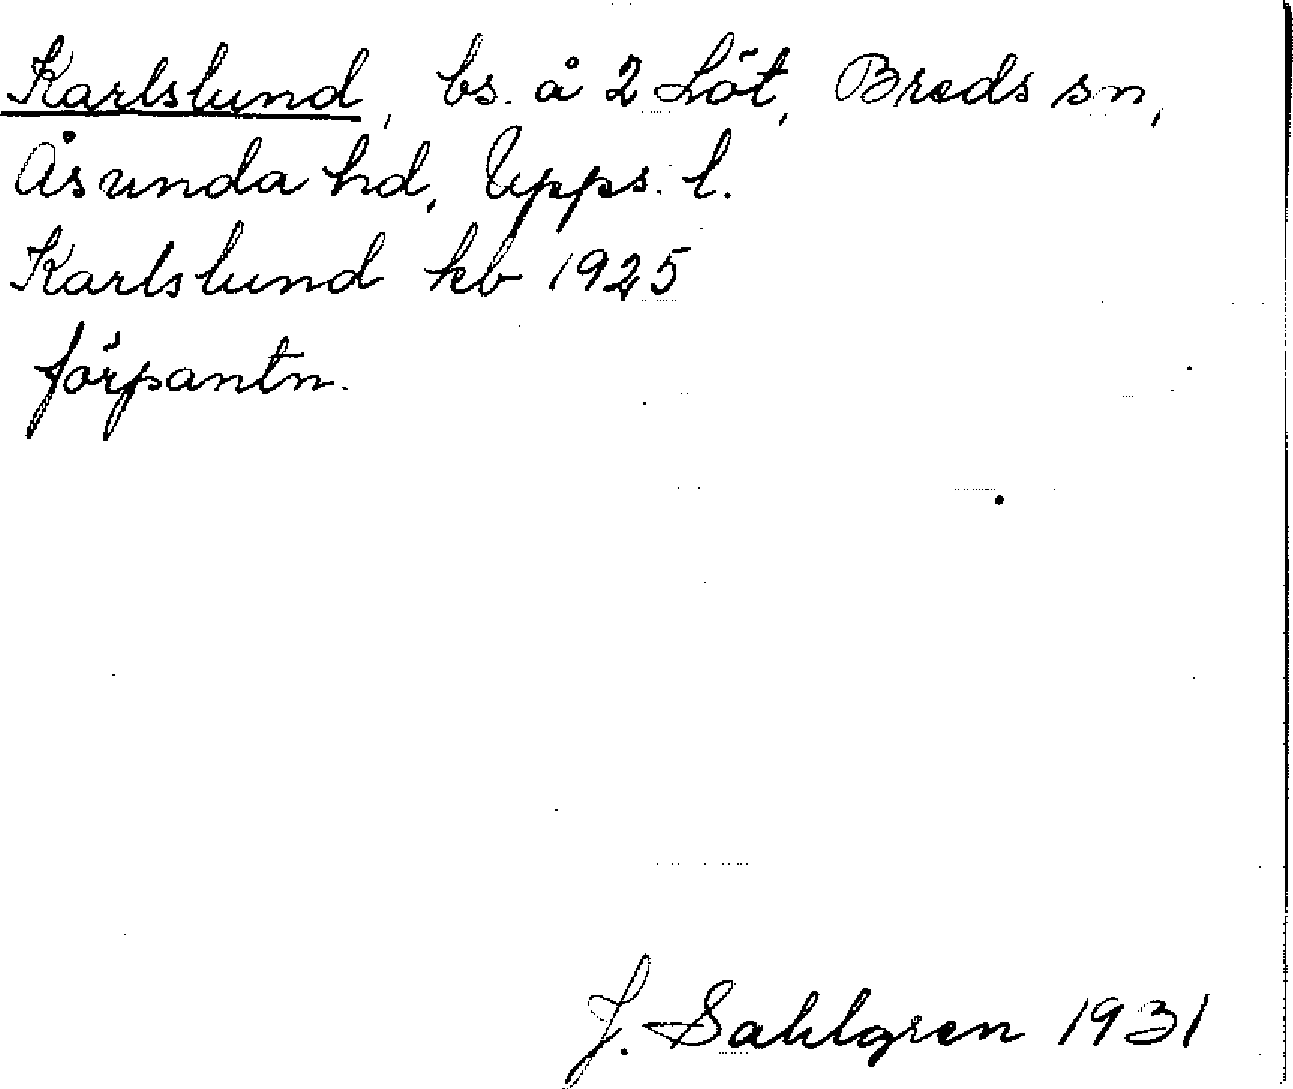 Karlslund, bs. å 2 Löt, Breds sn,
Åsunda hd, Upps. l.
Karlslund kb 1925
förpantn.
J. Sahlgren 1931